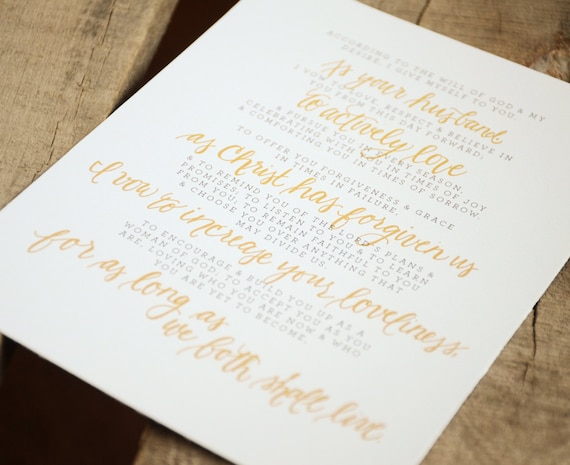 ACCORDING TO THE WILL OF GOD & MY
DESIRE, I GIVE MYSELF TO YOU
As your husband
I VOW TO LOVE, RESPECT & BELIEVE IN
YOU FROM THIS DAY FORWARD;
to actively love
& PURSUE YOU IN EVERY SEASON,
CELEBRATING WITH YOU IN TIMES OF JOY
& COMFORTING YOU IN TIMES OF SORROW;
TO OFFER YOU FORGIVENESS & GRACE
IN TIMES OF FAILURE,
as Christ has forgiven us
& TO REMIND YOU OF THE LORD'S PLANS &
PROMISES; TO LISTEN TO YOU & TO LEARN
YOU, TO REMAIN FAITHFUL TO YOU
& CHOOSE YOU OVER ANYTHING THAT
MAY DIVIDE US.
I vow to increase your loveliness,
TO ENCOURAGE & BUILD YOU UP AS A
WOMAN OF GOD; TO ACCEPT YOU AS YOU
ARE, LOVING WHO YOU ARE NOW & WHO
YOU ARE YET TO BECOME,
for as long as
we both shall live.